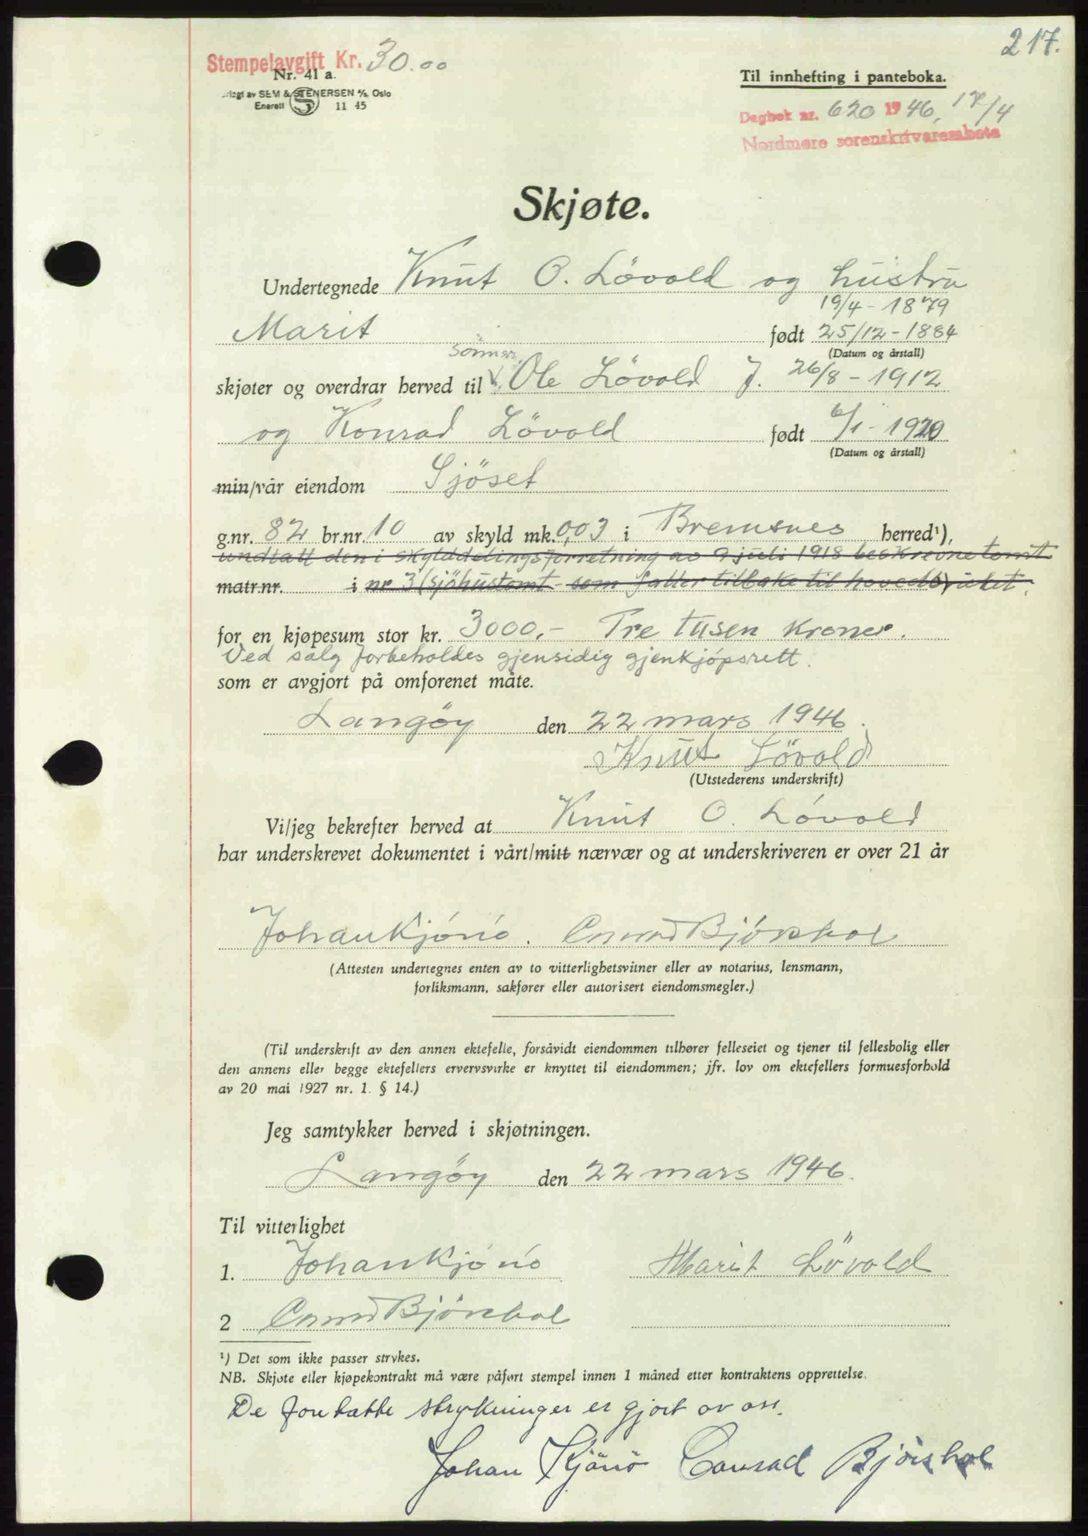 217.
Stempelavgift Kr. 30.00
Nr. 41 a.
SEM & STENERSEN A/S, Oslo
Enerett S 11 45
Til innhefting i panteboka.
Dagbok nr. 620 1946, 17/4
Nordmøre sorenskriverembete
Skjøte.
Undertegnede Knut O. Lövold og hustru
19/4 - 1879
Marit født 25/12 - 1884
(Datum og årstall)
sönner
skjøter og overdrar herved til Ole Lövold f. 26/8 - 1912
og Konrad Lövold født 6/1 - 1920
(Datum og årstall)
min/vår eiendom Sjöset
g.nr. 82 br.nr. 10 av skyld mk. 0,03 i Bremsnes herred¹),
undtatt den i skylddelingsforretning av 9 juli 1918 beskrevne tomt
matr.nr. i nr 3 (sjöhustomt som faller tilbake til hovedbruket.
for en kjøpesum stor kr. 3000,- Tre tusen kroner.
Ved salg forbeholdes gjensidig gjenkjöpsrett.
som er avgjort på omforenet måte.
Langöy den 22 mars 1946.
Knut Lövold
(Utstederens underskrift)
Vi/jeg bekrefter herved at Knut O. Lövold
har underskrevet dokumentet i vårt/mitt nærvær og at underskriveren er over 21 år
Johan Kjönö. Conrad Björshol
(Attesten undertegnes enten av to vitterlighetsvitner eller av notarius, lensmann,
forliksmann, sakfører eller autorisert eiendomsmegler.)
(Til underskrift av den annen ektefelle, forsåvidt eiendommen tilhører felleseiet og tjener til fellesbolig eller
den annens eller begge ektefellers ervervsvirke er knyttet til eiendommen; jfr. lov om ektefellers formuesforhold
av 20 mai 1927 nr. 1. § 14.)
Jeg samtykker herved i skjøtningen.
Langöy den 22 mars 1946.
Til vitterlighet
1. Johan Kjönö Marit Lövold
2 Conrad Björshol
¹) Det som ikke passer strykes.
NB. Skjøte eller kjøpekontrakt må være påført stempel innen 1 måned etter kontraktens opprettelse.
De foretatte strykninger er gjort av oss.
Johan Kjönö Conrad Björshol